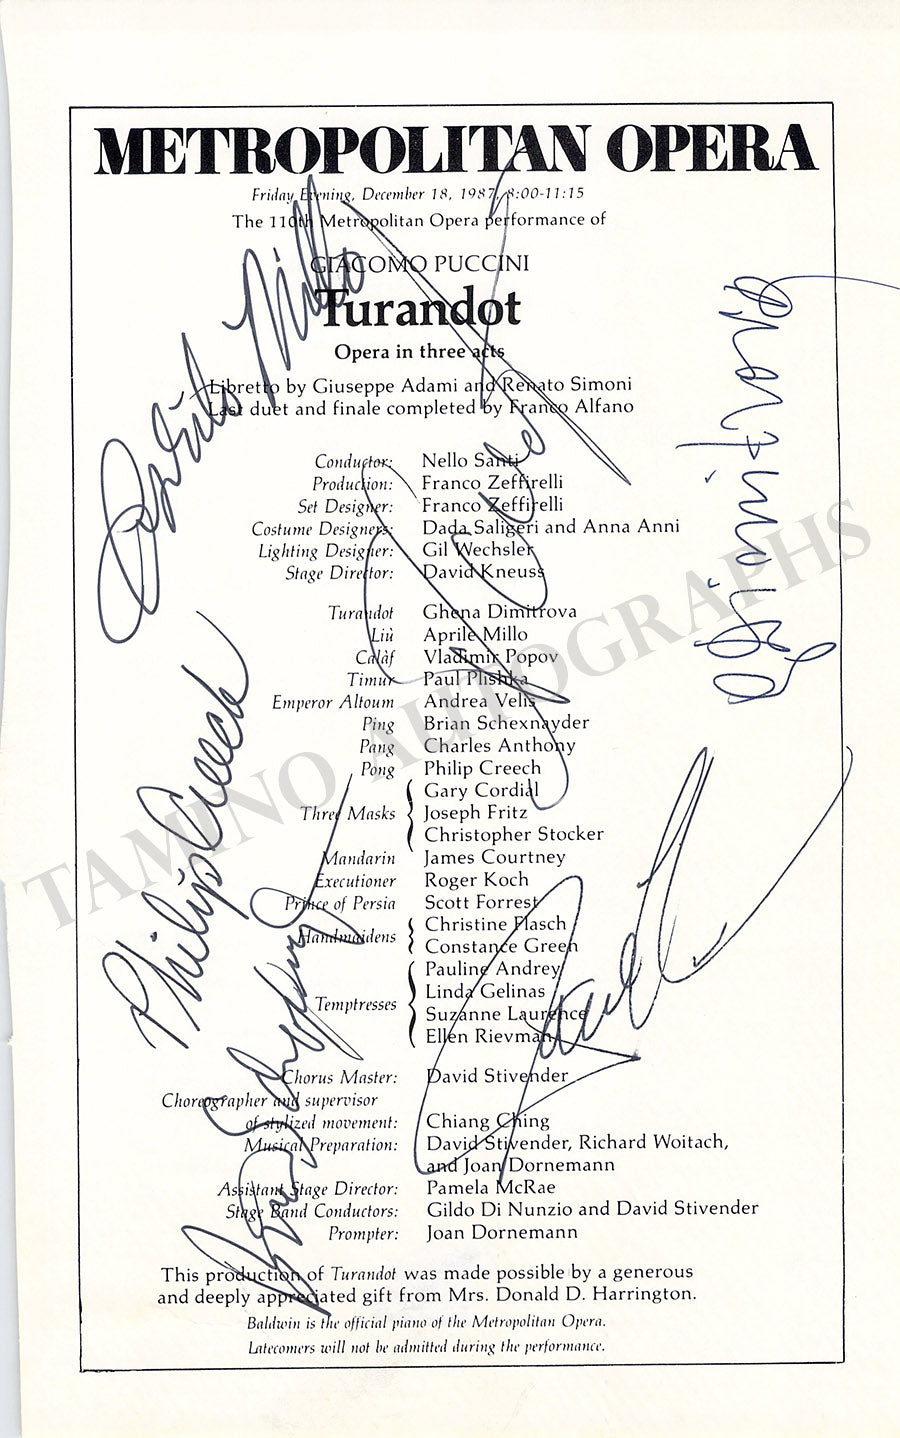 METROPOLITAN OPERA
Friday Evening, December 18, 1987, 8:00-11:15
The 110th Metropolitan Opera performance of
GIACOMO PUCCINI
Turandot
Opera in three acts
Libretto by Giuseppe Adami and Renato Simoni
Last duet and finale completed by Franco Alfano
Conductor: Nello Santi
Production: Franco Zeffirelli
Set Designer: Franco Zeffirelli
Costume Designers: Dada Saligeri and Anna Anni
Lighting Designer: Gil Wechsler
Stage Director: David Kneuss
Turandot Ghena Dimitrova
Liù Aprile Millo
Calàf Vladimir Popov
Timur Paul Plishka
Emperor Altoum Andrea Velis
Ping Brian Schexnayder
Pang Charles Anthony
Pong Philip Creech
Three Masks { Gary Cordial
Joseph Fritz
Christopher Stocker
Mandarin James Courtney
Executioner Roger Koch
Prince of Persia Scott Forrest
Handmaidens { Christine Flasch
Constance Green
Temptresses { Pauline Andrey
Linda Gelinas
Suzanne Laurence
Ellen Rievman
Chorus Master: David Stivender
Choreographer and supervisor
of stylized movement: Chiang Ching
Musical Preparation: David Stivender, Richard Woitach,
and Joan Dornemann
Assistant Stage Director: Pamela McRae
Stage Band Conductors: Gildo Di Nunzio and David Stivender
Prompter: Joan Dornemann
This production of Turandot was made possible by a generous
and deeply appreciated gift from Mrs. Donald D. Harrington.
Baldwin is the official piano of the Metropolitan Opera.
Latecomers will not be admitted during the performance.
Millo
Philip Creech
TAMINO AUTOGRAPHS